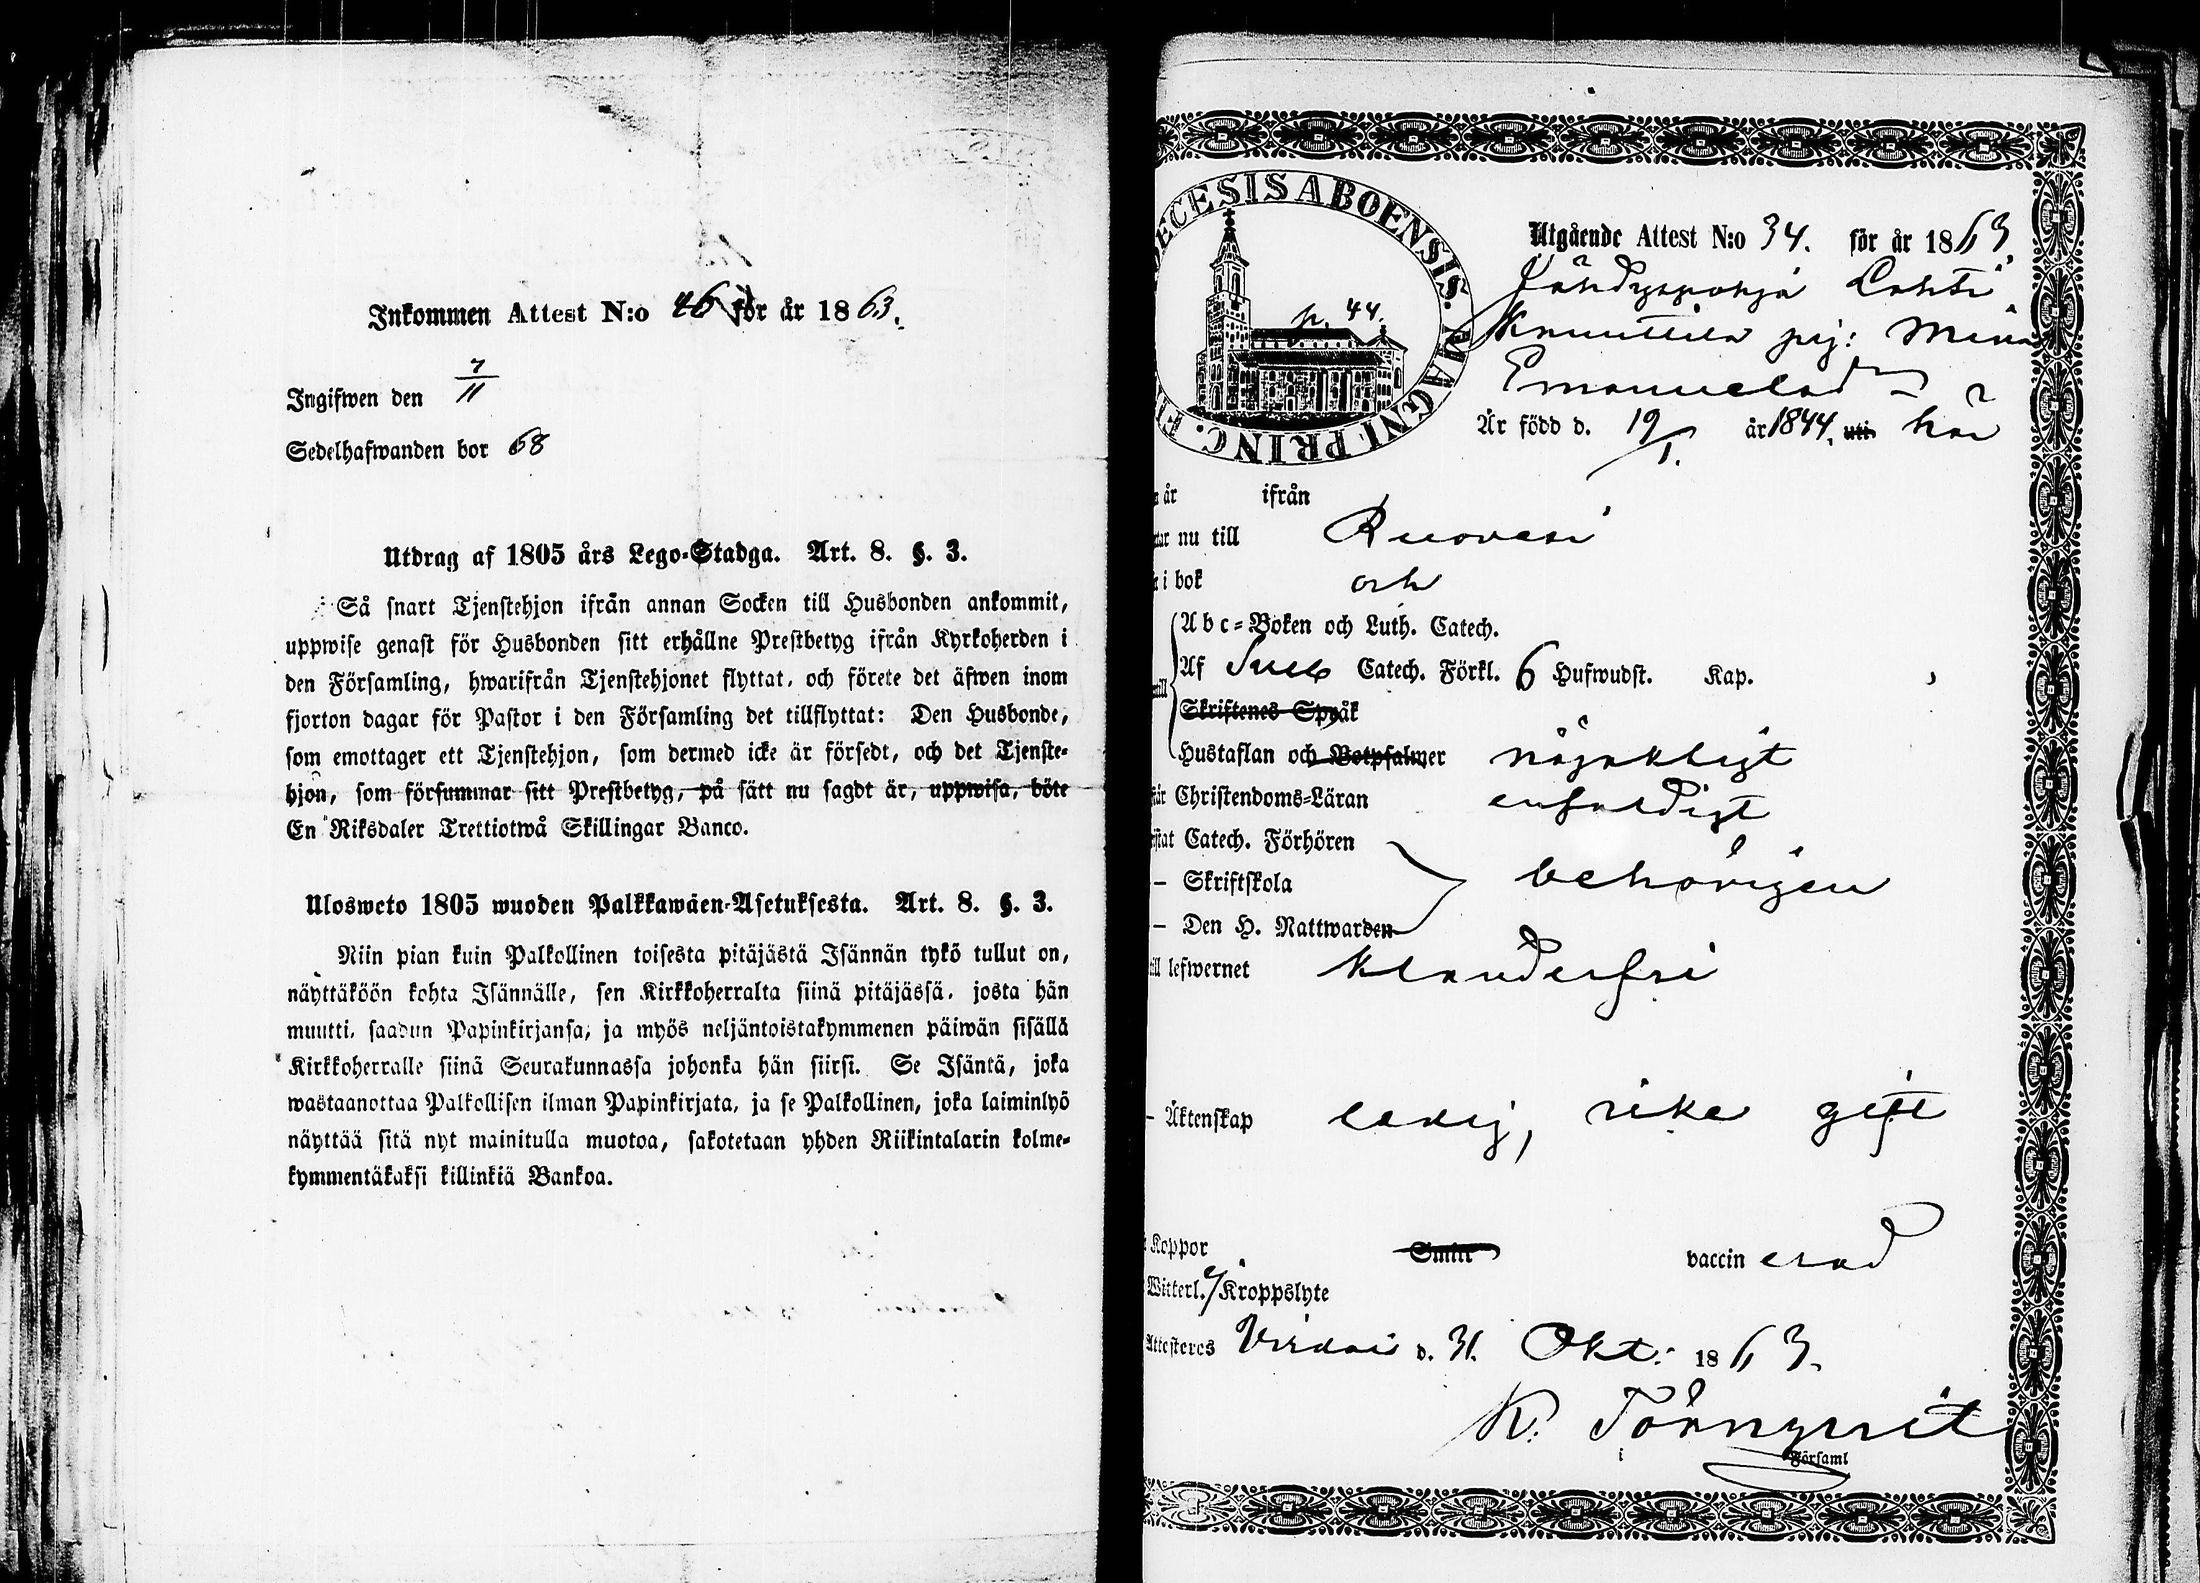 Inkommen Attest N:o 46 för år 1863.
Ingifwen den 7/11
Sedelhafwanden bor 68
Utdrag af 1805 års Lego-Stadga. Art. 8. §. 3.
Så snart Tjenstehjon ifrån annan Socken till Husbonden ankommit,
uppwise genast för Husbonden sitt erhållne Prestbetyg ifrån Kyrkoherden i
den Församling, hwarifrån Tjenstehjonet flyttat, och förete det äfwen inom
fjorton dagar för Pastor i den Församling det tillflyttat: Den Husbonde,
som emottager ett Tjenstehjon, som dermed icke är försedt, och det Tjenste-
hjon, som försummar sitt Prestbetyg, på sätt nu sagdt är, uppwisa, böte
En Riksdaler Trettiotwå Skillingar Banco.
Ulosweto 1805 wuoden Palkkawäen-Asetuksesta. Art. 8. §. 3.
Niin pian kuin Palkollinen toisesta pitäjästä Isännän tykö tullut on,
näyttäköön kohta Isännälle, sen Kirkkoherralta siinä pitäjässä, josta hän
muutti, saadun Papinkirjansa, ja myös neljäntoistakymmenen päiwän sisällä
Kirkkoherralle siinä Seurakunnassa johonka hän siirsi. Se Isäntä, joka
wastaanottaa Palkollisen ilman Papinkirjata, ja se Palkollinen, joka laiminlyö
näyttää sitä nyt mainitulla muotoa, sakotetaan yhden Riikintalarin kolme-
kymmentäkaksi killinkiä Bankoa.
ECESIS ABOENSIS. MAGNI PRINC. F
p. 44.
Utgående Attest N:o 34. för år 1863.
Jähdyspohja Lahti
Knuuttila pig: Mina
Emanuelsd
Är född d. 19/1. år 1844. uti här
år ifrån
nu till Ruovesi
i bok och
Abc-Boken och Luth. Catech.
Af Sveb Catech. Förkl. 6 Hufwudst. Kap.
Skriftenes Språk
Hustaflan och Botpsalmer nöjaktligt
Christendoms-Läran enfaldigt
Catech. Förhören
– Skriftskola behörigen
– Den H. Nattwarden
till lefwernet klanderfri
– Äktenskap ledig, icke gift
Koppor Smitt vaccinerad
Witterl. Kroppslyte
Attesteres Virdois d. 31. Okt: 1863.
K. Törnqvist
i Församl